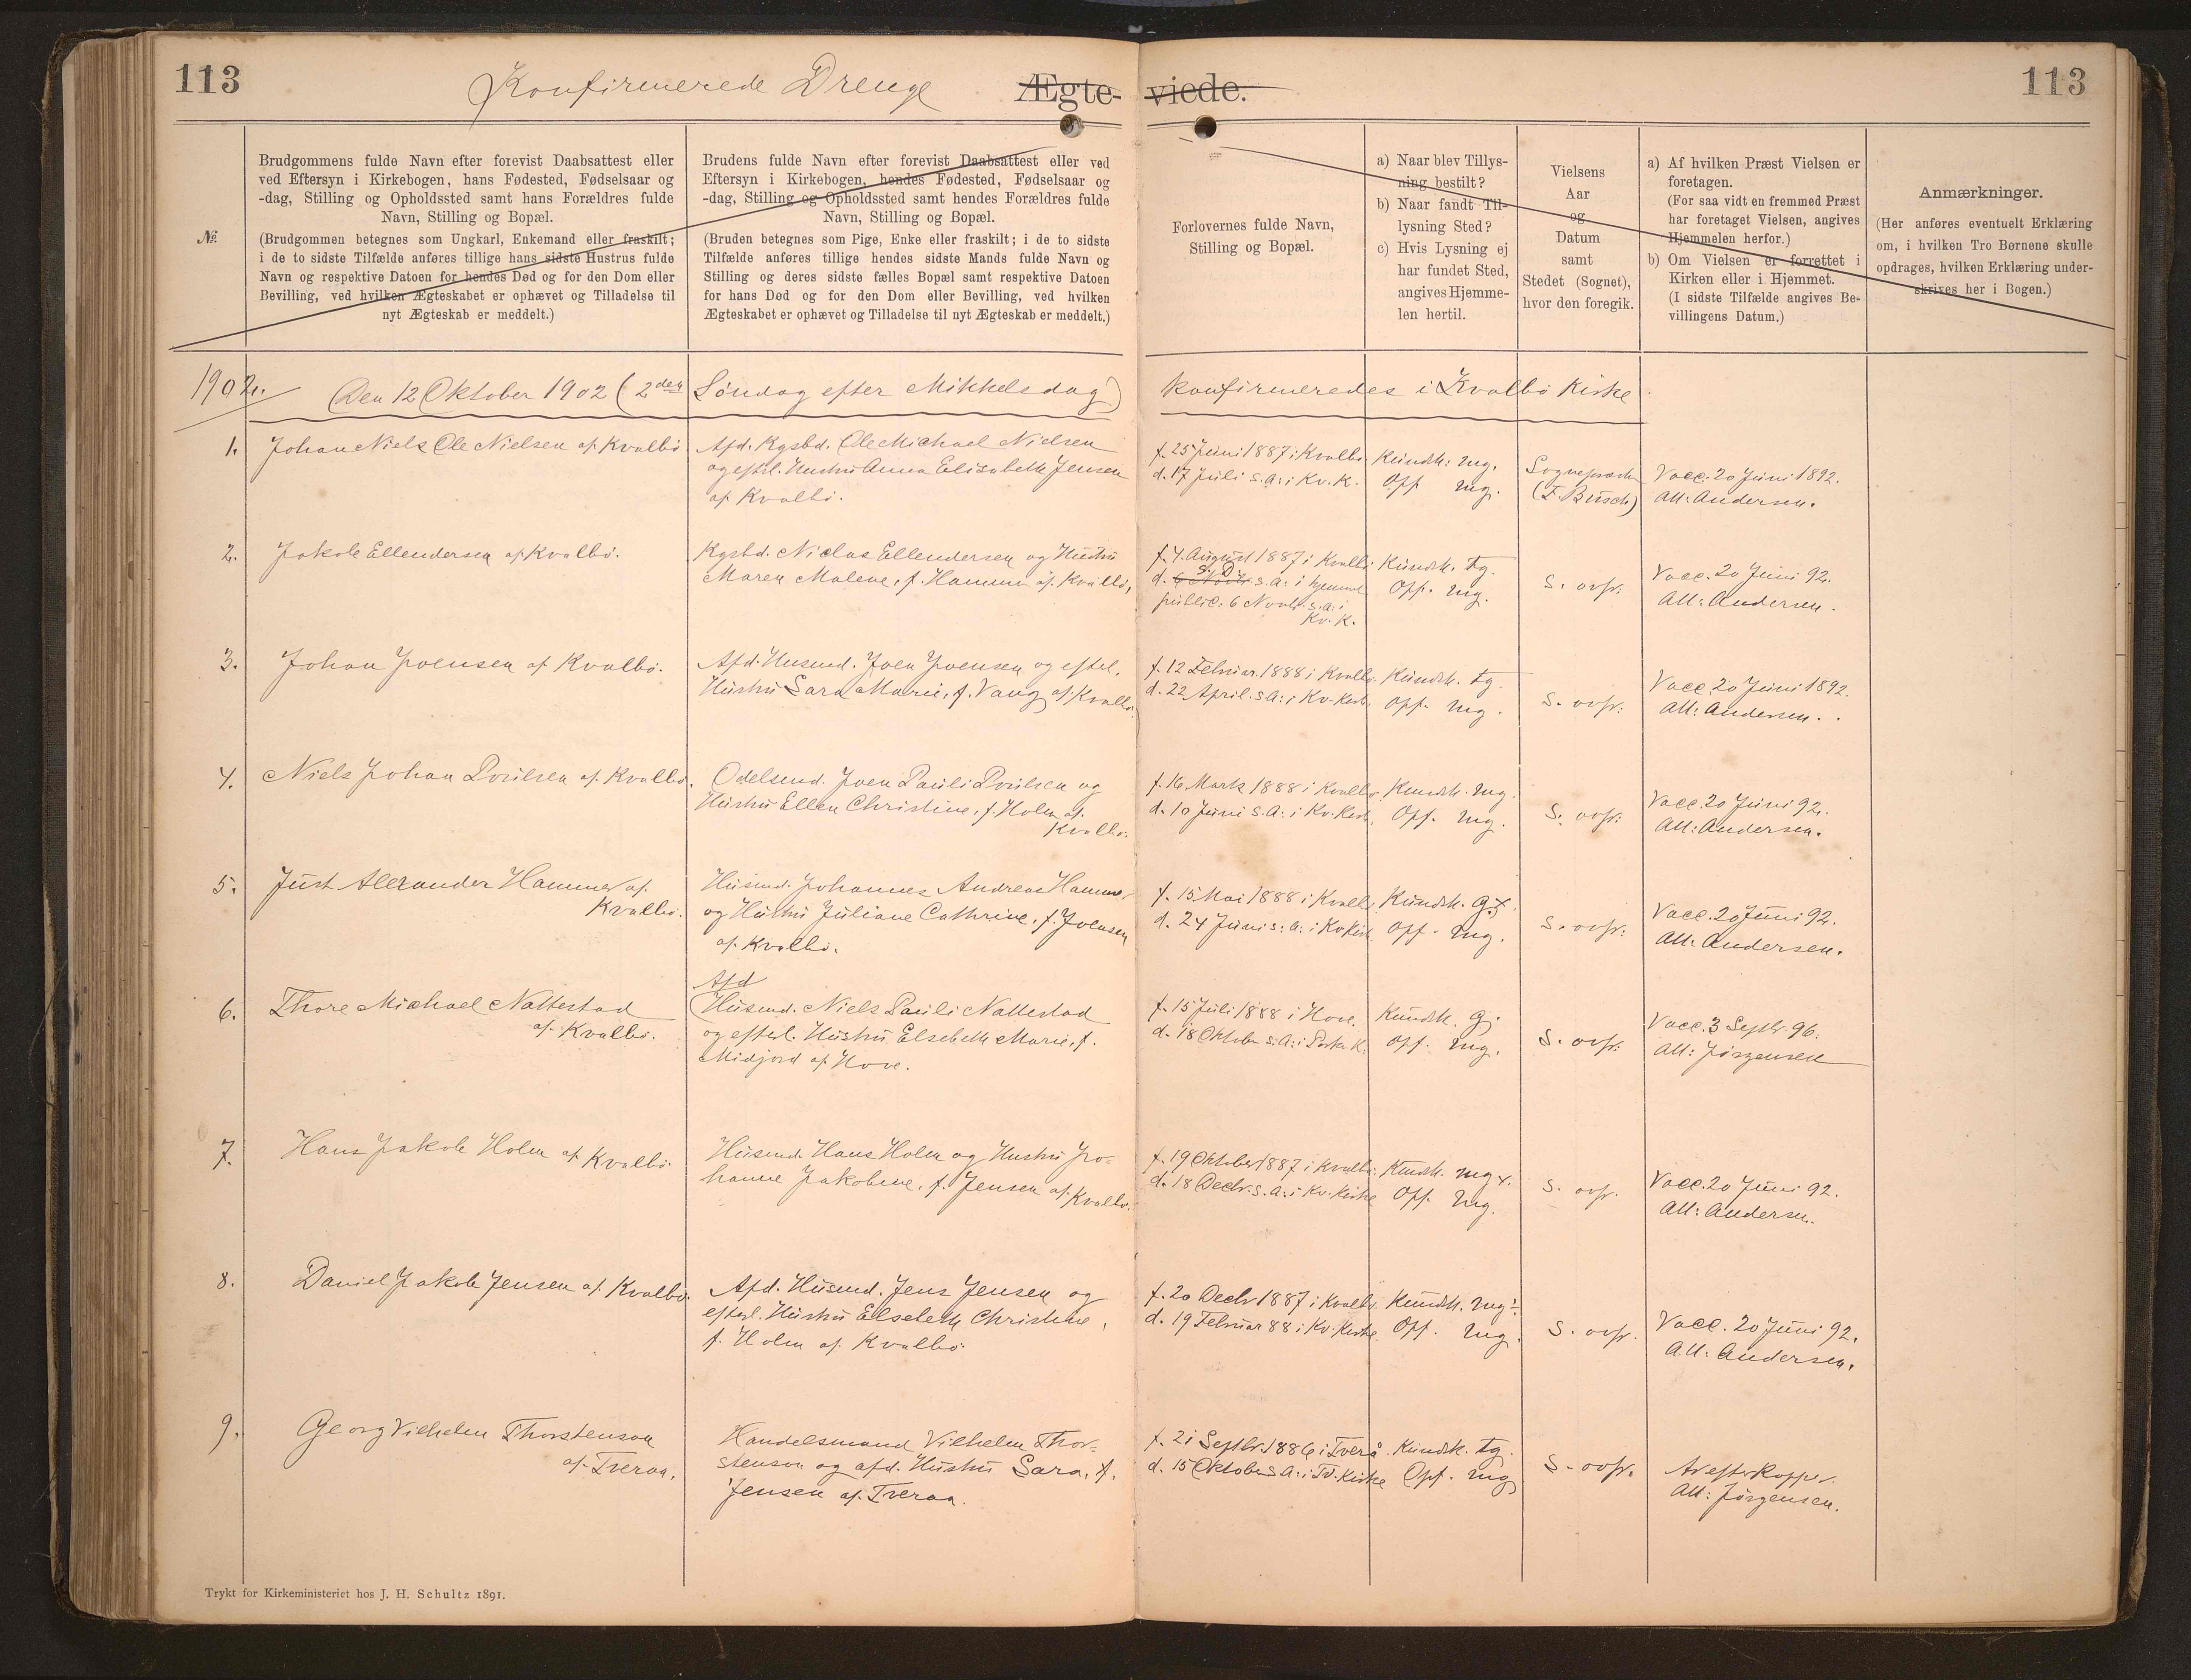 113
Konfirmerede Drenge
Ægte-
viede.
113
№.
Brudgommens fulde Navn efter forevist Daabsattest eller
ved Eftersyn i Kirkebogen, hans Fødested, Fødselsaar og
-dag, Stilling og Opholdssted samt hans Forældres fulde
Navn, Stilling og Bopæl.
(Brudgommen betegnes som Ungkarl, Enkemand eller fraskilt;
i de to sidste Tilfælde anføres tillige hans sidste Hustrus fulde
Navn og respektive Datoen for hendes Død og for den Dom eller
Bevilling, ved hvilken Ægteskabet er ophævet og Tilladelse til
nyt Ægteskab er meddelt.)
Brudens fulde Navn efter forevist Daabsattest eller ved
Eftersyn i Kirkebogen, hendes Fødested, Fødselsaar og
-dag, Stilling og Opholdssted samt hendes Forældres fulde
Navn, Stilling og Bopæl.
(Bruden betegnes som Pige, Enke eller fraskilt; i de to sidste
Tilfælde anføres tillige hendes sidste Mands fulde Navn og
Stilling og deres sidste fælles Bopæl samt respektive Datoen
for hans Død og for den Dom eller Bevilling, ved hvilken
Ægteskabet er ophævet og Tilladelse til nyt Ægteskab er meddelt.)
Forlovernes fulde Navn,
Stilling og Bopæl.
a) Naar blev Tillys-
ning bestilt?
b) Naar fandt Til-
lysning Sted?
c) Hvis Lysning ej
har fundet Sted,
angives Hjemme-
len hertil.
Vielsens
Aar
og
Datum
samt
Stedet (Sognet),
hvor den foregik.
a) Af hvilken Præst Vielsen er
foretagen.
(For saa vidt en fremmed Præst
har foretaget Vielsen, angives
Hjemmelen herfor.)
b) Om Vielsen er forrettet i
Kirken eller i Hjemmet.
(I sidste Tilfælde angives Be-
villingens Datum.)
Anmærkninger.
(Her anføres eventuelt Erklæring
om, i hvilken Tro Børnene skulle
opdrages, hvilken Erklæring under-
skrives her i Bogen.)
1902.
Den 12 Oktober 1902 (2den Søndag efter Mikkelsdag) konfirmeredes i Kvalbø Kirke
1. Johan Niels Ole Nielsen af Kvalbø
Afd. Kgsbd. Ole Michael Nielsen
og eftl. Hustru Anna Elisabeth Jensen
af Kvalbø.
f. 25 Juni 1887 i Kvalbø.
d. 17 Juli s.A. i Kv. K.
Kundsk: mg.
Opf mg.
Sognepræsten
(F. Busch)
Vacc. 20 Juni 1892.
Att: Andersen.
2. Jakob Ellendersen af Kvalbø.
Kgsbd. Niclas Ellendersen og Hustru
Maren Malene, f. Hammer af Kvalbø,
f. 4. August 1887 i Kvalbø.
s. D.
d. 6 Novbr s.A. i Hjemmet
public. 6 Novbr. s.A. i
Kv. K.
Kundsk. tg.
Opf. mg.
S. ovfr.
Vacc. 20 Juni 92.
Att: Andersen.
3. Johan Joensen af Kvalbø.
Afd. Husmd. Joen Joensen og eftel.
Hustru Sara Marie, f. Vang af Kvalbø.
f. 12 Februar 1888 i Kvalbø.
d. 22 April. s.A. i Kv. Kirke
Kundsk. tg.
Opf. mg.
S. ovfr:
Vacc. 20 Juni 1892.
Att: Andersen.
4. Niels Johan Poulsen af Kvalbø.
Odelsmd. Joen Pauli Poulsen og
Hustru Ellen Christine, f. Holm af
Kvalbø.
f. 16 Marts 1888 i Kvalbø.
d. 10 Juni s.A. i Kv. Kirke.
Kundsk. mg.
Opf. mg.
S. ovfr:
Vacc. 20 Juni 92.
Att: Andersen.
5. Just Alexander Hammer af.
Kvalbø.
Husmd. Johannes Andreas Hammer
og Hustru Juliane Cathrine, f. Joensen
af. Kvalbø.
f. 15 Mai 1888 i Kvalbø.
d. 24 Juni s. A. i Kv Kirke
Kundsk. g.x
Opf. mg.
S. ovfr:
Vacc. 20 Juni 92.
Att: Andersen.
6. Thore Michael Nattestad
af. Kvalbø.
Afd
Husmd. Niels Pauli Nattestad
og efterl. Hustru Elsebeth Marie, f.
Midjord af Hove.
f. 15 Juli 1888 i Hove.
d. 18 Oktober s.A. i Pork. K.
Kundsk. g.
Opf. mg.
S. ovfr:
Vacc. 3 Septbr. 96.
Att: Jørgensen
7. Hans Jakob Holm af Kvalbø.
Husmd. Hans Holm og Hustru Jo-
hanne Jakobine, f. Jensen af. Kvalbø.
f. 19 Oktober 1887 i Kvalbø.
d. 18 Decbr. s.A. i Kv. Kirke
Kundsk. mg x.
Opf. mg.
S. ovfr.
Vacc. 20 Juni 92.
Att: Andersen.
8. Daniel Jakob Jensen af. Kvalbø.
Afd. Husmd. Jens Jensen og
efterl. Hustru Elsebeth Christine,
f. Holm af. Kvalbø.
f. 20 Decbr 1887 i Kvalbø.
d. 19 Februar 88 i Kv. Kirke.
Kundsk. mg ÷.
Opf. mg.
S. ovfr.
Vacc. 20 Juni 92.
Att: Andersen.
9. Georg Vilhelm Thorstenson
af. Tveraa.
Handelsmand Vilhelm Thor-
stenson og afd. Hustru Sara, f.
Jensen af. Tveraa.
f. 21 Septbr. 1886 i Tverå.
d. 15 Oktober s.A. i Tv. Kirke
Kundsk. tg.
Opf. mg
S. ovfr.
Ar efter Kopper.
Att: Jørgensen.
Trykt for Kirkeministeriet hos J. H. Schultz 1891.